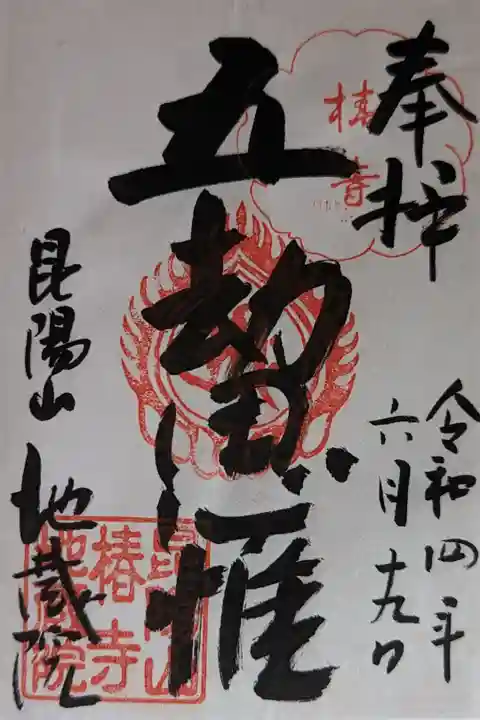 奉拝
令和四年
六月十九日
五劫思惟
昆陽山 地蔵院
昆陽山
椿寺
地蔵院